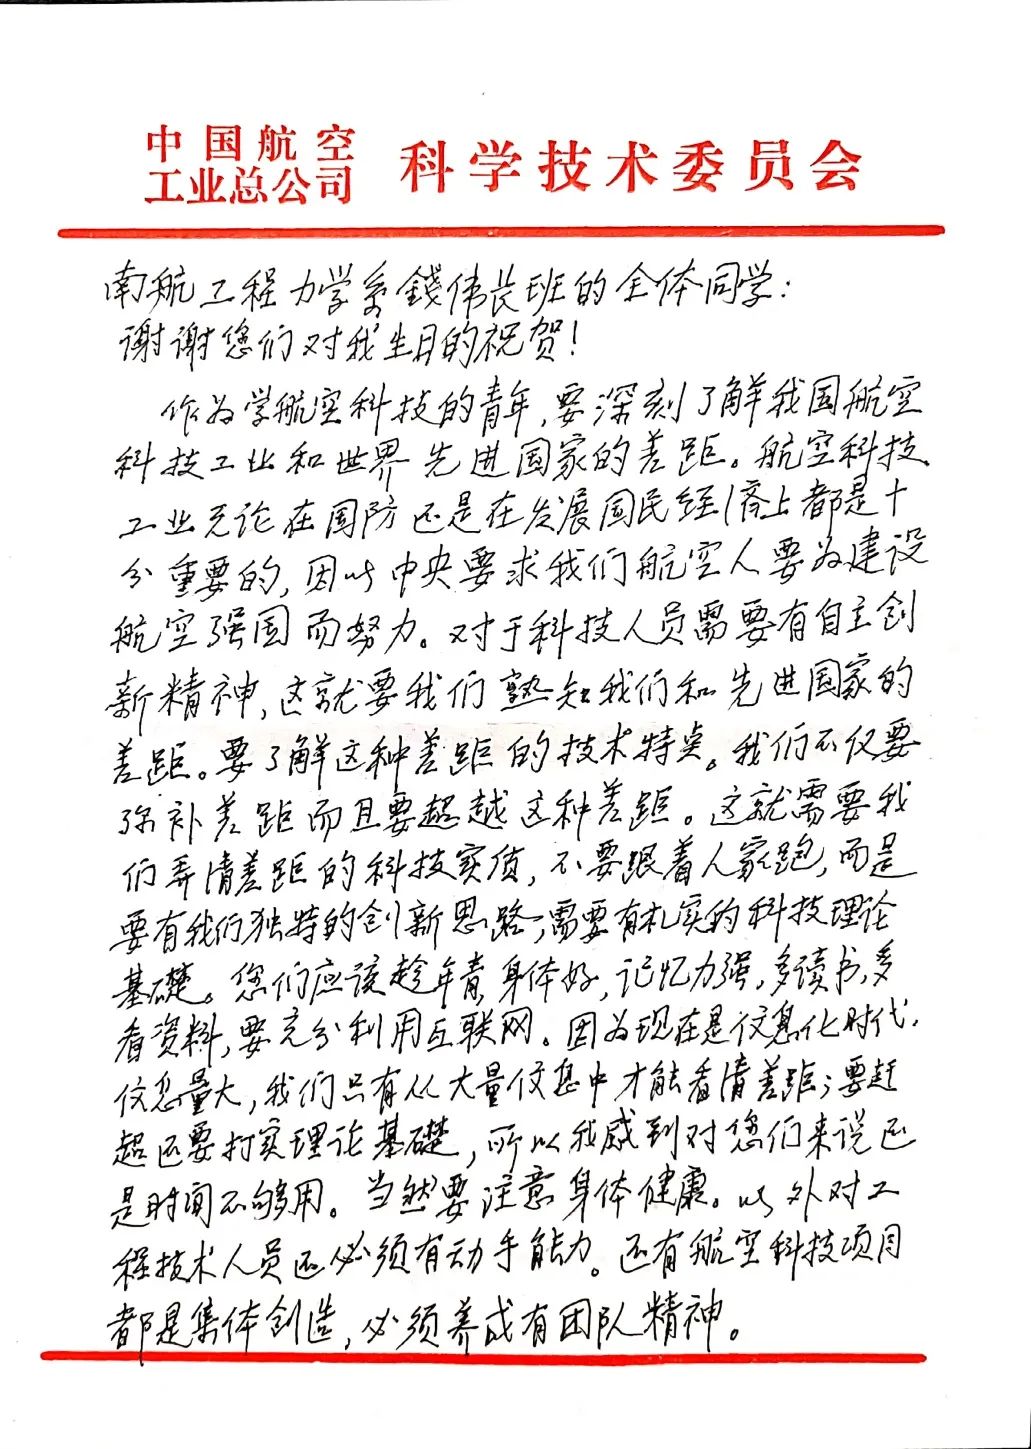 中国航空
工业总公司
科学技术委员会
南航工程力学系錢伟长班的全体同学:
谢谢您们对我生日的祝贺!
作为学航空科技的青年,要深刻了解我国航空
科技工业和世界先进国家的差距。航空科技
工业无论在国防还是在发展国民经济上都是十
分重要的,因此中央要求我们航空人要为建设
航空强国而努力。对于科技人员需要有自主创
新精神,这就要我们熟知我们和先进国家的
差距。要了解这种差距的技术特点。我们不仅要
弥补差距而且要超越这种差距。这就需要我
们弄清差距的科技实质,不要跟着人家跑,而是
要有我们独特的创新思路;需要有扎实的科技理论
基礎。您们应该趁年青,身体好,记忆力强,多读书,多
看资料,要充分利用互联网。因为现在是信息化时代,
信息量大,我们只有从大量信息中才能看清差距;要赶
超还要打实理论基礎,所以我感到对您们来说还
是时间不够用。当然要注意身体健康。此外对工
程技术人员还必须有动手能力。还有航空科技项目
都是集体创造,必须养成有团队精神。